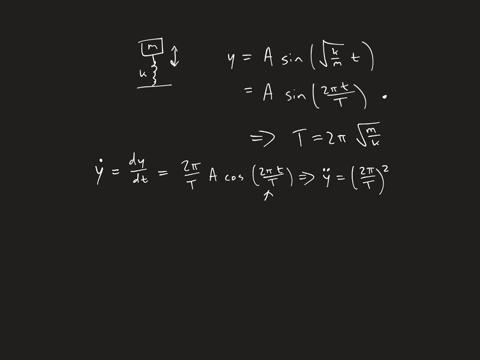 m
k
y = A sin (√(k/m) t)
= A sin (2πt/T) .
=> T = 2π √(m/k)
ẏ = dy/dt = 2π/T A cos (2πt/T) => ÿ = (2π/T)²